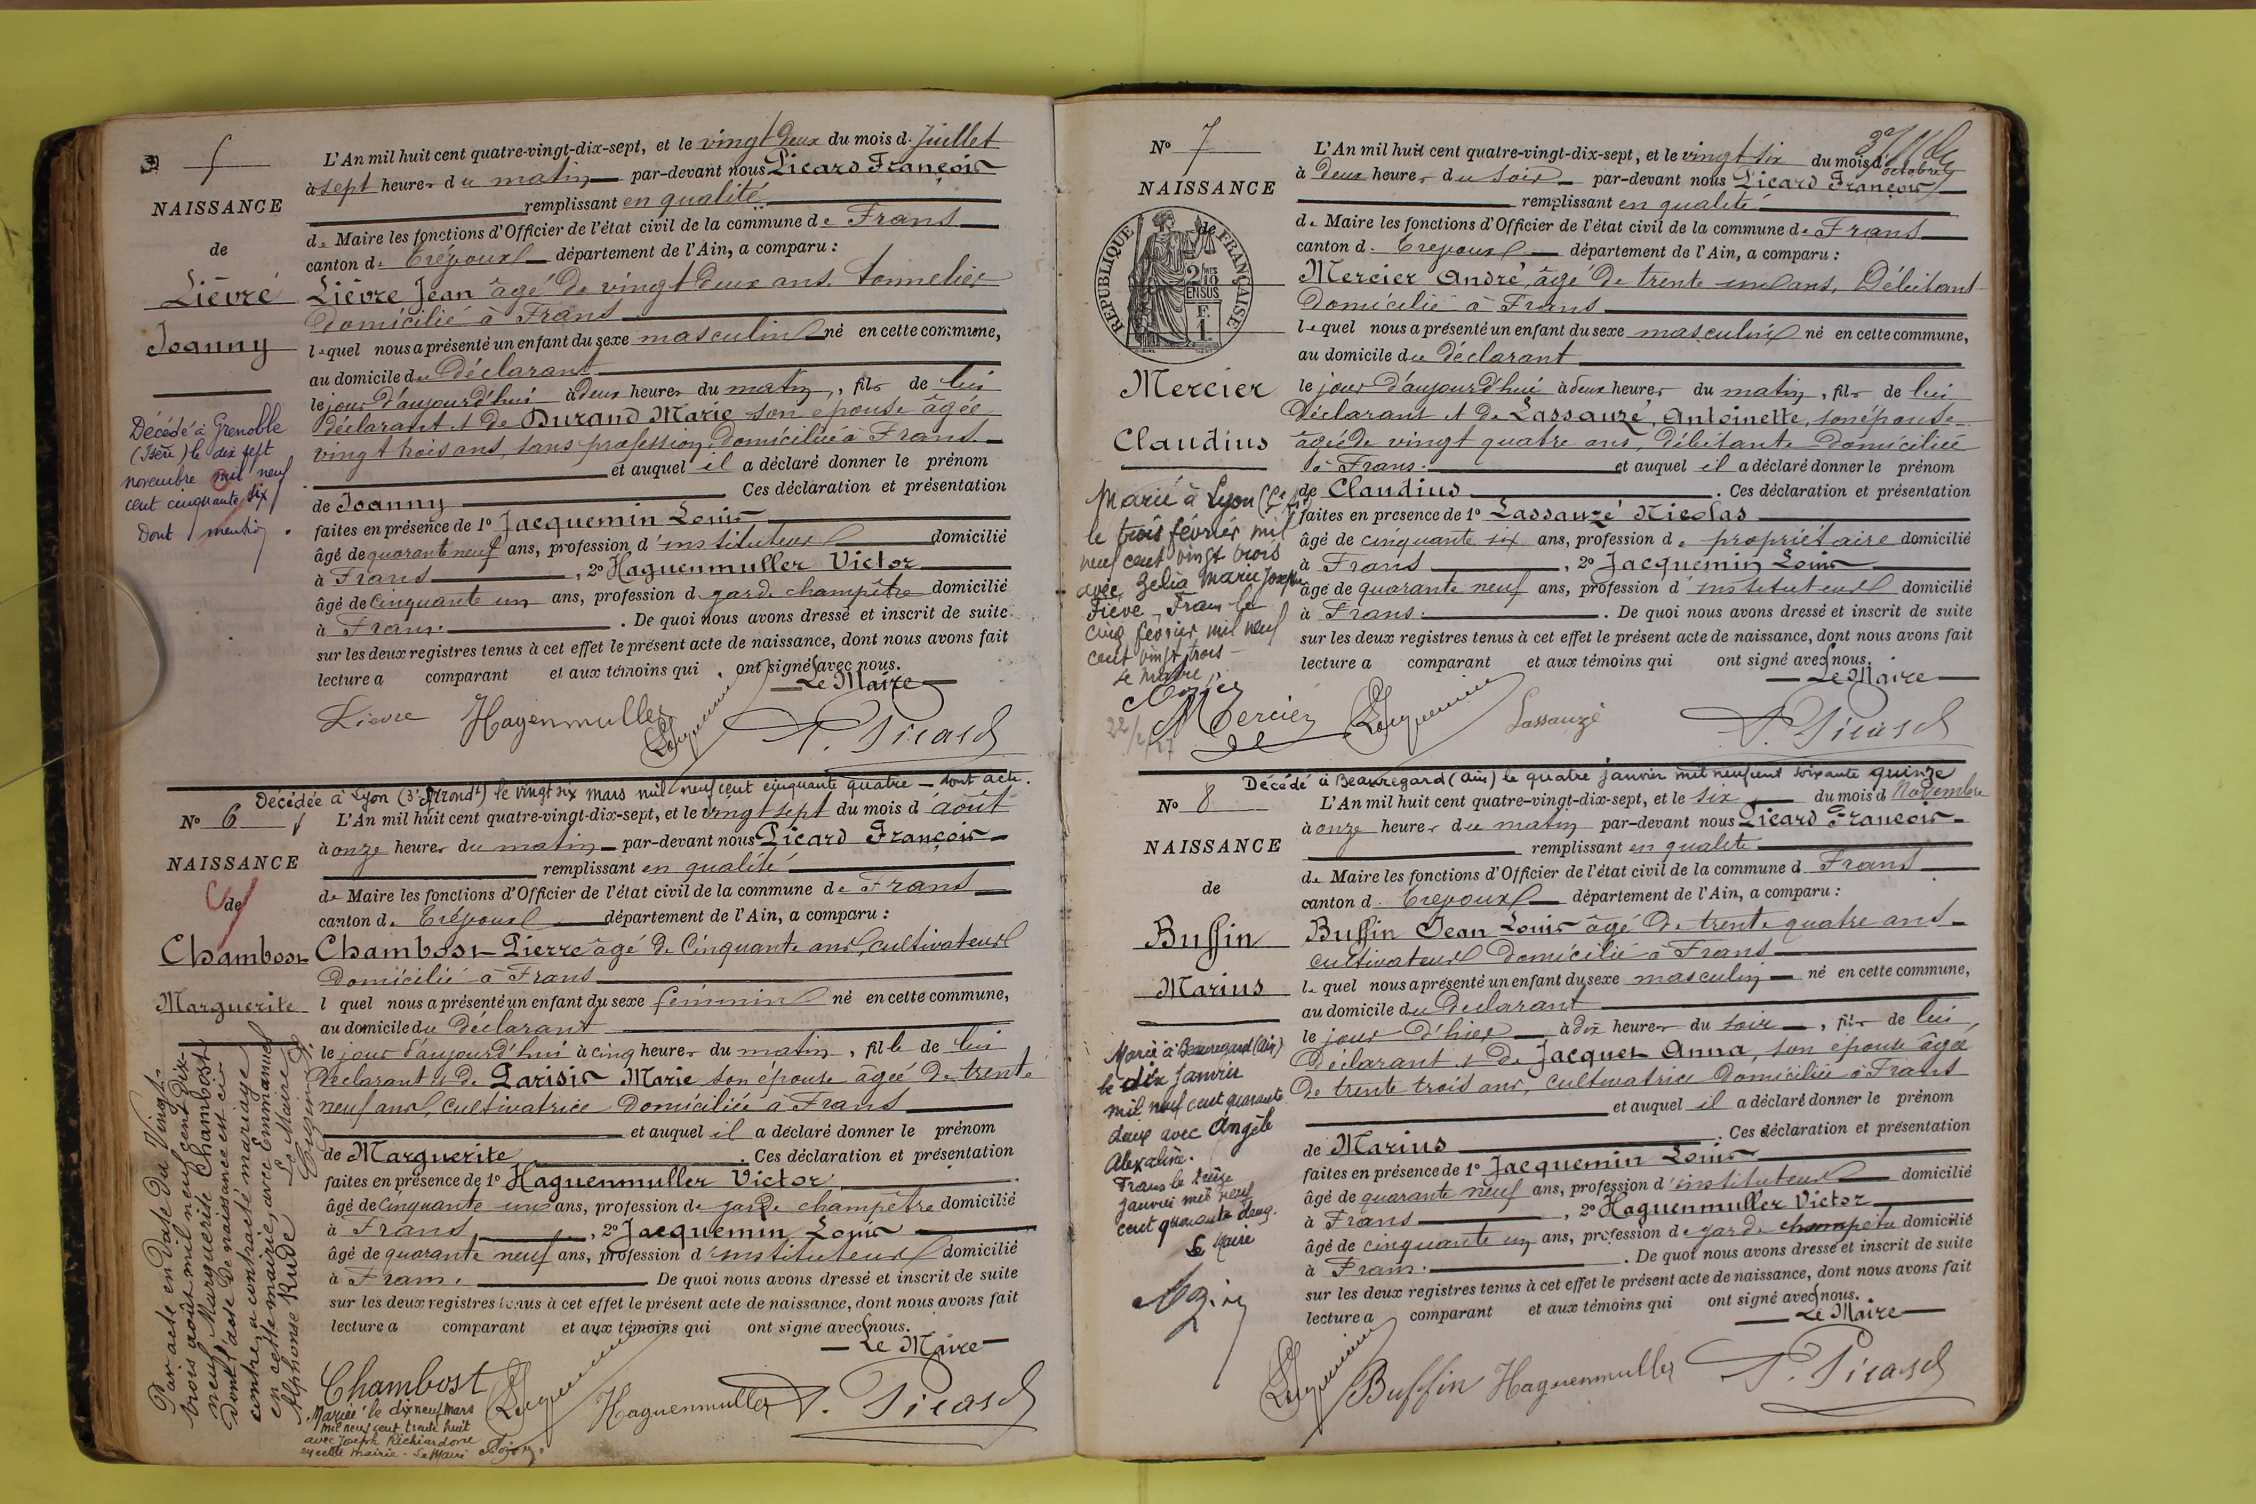 5
L'An mil huit cent quatre-vingt-dix-sept, et le vingt deux du mois de Juillet
à sept heures du matin par-devant nous Picard François
NAISSANCE
remplissant en qualité
de Maire les fonctions d'Officier de l'état civil de la commune de Frans
de
canton de Trévoux département de l'Ain, a comparu :
Lièvre
Lièvre Jean âgé de vingt deux ans, tonnelier
domicilié à Frans
Joanny
lequel nous a présenté un enfant du sexe masculin né en cette commune,
au domicile du déclarant
le jour d'aujourd'hui à deux heures du matin, fils de lui
déclarant et de Durand Marie son épouse âgée
vingt trois ans, sans profession, domiciliée à Frans
et auquel il a déclaré donner le prénom
de Joanny Ces déclaration et présentation
faites en présence de 1º Jacquemin Louis
âgé de quarante neuf ans, profession d'instituteur domicilié
à Frans, 2º Haguenmuller Victor
âgé de cinquante un ans, profession de garde champêtre domicilié
à Frans. De quoi nous avons dressé et inscrit de suite
sur les deux registres tenus à cet effet le présent acte de naissance, dont nous avons fait
lecture a comparant et aux témoins qui ont signé avec nous.
Le Maire
Décédé à Grenoble
(Isère) le dix sept
novembre mil neuf
cent cinquante six
Dont mention.
Lievre Hagenmuller Jacquemin F. Picard
Décédée à Lyon (3e Arrondt) le vingt six mars mil neuf cent cinquante quatre - dont acte.
Nº 6
L'An mil huit cent quatre-vingt-dix-sept, et le vingt sept du mois d août
à onze heures du matin par-devant nous Picard François
NAISSANCE
remplissant en qualité
de
de Maire les fonctions d'Officier de l'état civil de la commune de Frans
canton de Trévoux département de l'Ain, a comparu :
Chambost
Chambost Pierre âgé de Cinquante ans, cultivateur
domicilié à Frans
Marguerite
l quel nous a présenté un enfant du sexe féminin né en cette commune,
au domicile du déclarant
le jour d'aujourd'hui à cinq heures du matin, fille de lui
déclarant et de Parisis Marie son épouse âgée de trente
neuf ans, cultivatrice domiciliée à Frans
et auquel il a déclaré donner le prénom
de Marguerite. Ces déclaration et présentation
faites en présence de 1º Haguenmuller Victor
âgé de Cinquante un ans, profession de garde champêtre domicilié
à Frans, 2º Jacquemin Louis
âgé de quarante neuf ans, profession d'instituteur domicilié
à Frans. De quoi nous avons dressé et inscrit de suite
sur les deux registres tenus à cet effet le présent acte de naissance, dont nous avons fait
lecture a comparant et aux témoins qui ont signé avec nous.
Le Maire
Par acte en date du Vingt-
trois août mil neuf cent dix-
neuf Marguerite Chambost
dont l'acte de naissance est ci-
contre, a contracté mariage
en cette mairie, avec Emmanuel
Alphonse Rude. Le Maire
Chambost Jacquemin Haguenmuller F. Picard
Mariée le dix neuf mars
mil neuf cent trente huit
avec Joseph Richiardone
en cette mairie - Le Maire
Nº 7
L'An mil huit cent quatre-vingt-dix-sept, et le vingt six du mois d'octobre
à deux heures du soir par-devant nous Picard François
NAISSANCE
remplissant en qualité
de
de Maire les fonctions d'Officier de l'état civil de la commune de Frans
canton de Trévoux département de l'Ain, a comparu :
RÉPUBLIQUE FRANÇAISE
Mercier André, âgé de trente un ans, Débitant
domicilié à Frans
lequel nous a présenté un enfant du sexe masculin né en cette commune,
au domicile du déclarant
Mercier
le jour d'aujourd'hui à deux heures du matin, fils de lui
déclarant et de Lassauzé, Antoinette, son épouse
Claudius
âgée de vingt quatre ans, débitante domiciliée
à Frans. et auquel il a déclaré donner le prénom
de Claudius. Ces déclaration et présentation
faites en présence de 1º Lassauzé Nicolas
âgé de cinquante six ans, profession de propriétaire domicilié
à Frans, 2º Jacquemin Louis
âgé de quarante neuf ans, profession d'instituteur domicilié
à Frans. De quoi nous avons dressé et inscrit de suite
sur les deux registres tenus à cet effet le présent acte de naissance, dont nous avons fait
lecture a comparant et aux témoins qui ont signé avec nous.
Le Maire
Marié à Lyon
le trois février mil
neuf cent vingt trois
avec Zélia Marie
Fieve, Frans le
cinq février mil neuf
cent vingt trois
Le Maire
Mercier Jacquemin Lassauzé F. Picard
Décédé à Beauregard (Ain) le quatre janvier mil neuf cent soixante quinze
Nº 8
L'An mil huit cent quatre-vingt-dix-sept, et le six du mois d Novembre
à onze heures du matin par-devant nous Picard François
NAISSANCE
remplissant en qualité
de Maire les fonctions d'Officier de l'état civil de la commune d Frans
de
canton d Trévoux département de l'Ain, a comparu :
Buffin
Buffin Jean Louis âgé de trente quatre ans
cultivateur domicilié à Frans
Marius
lequel nous a présenté un enfant du sexe masculin né en cette commune,
au domicile du déclarant
le jour d'hier à dix heures du soir, fils de lui,
déclarant et de Jacquet Anna, son épouse âgée
de trente trois ans, cultivatrice domiciliée à Frans
et auquel il a déclaré donner le prénom
de Marius. Ces déclaration et présentation
faites en présence de 1º Jacquemin Louis
âgé de quarante neuf ans, profession d'instituteur domicilié
à Frans, 2º Haguenmuller Victor
âgé de cinquante un ans, profession de garde champêtre domicilié
à Frans. De quoi nous avons dressé et inscrit de suite
sur les deux registres tenus à cet effet le présent acte de naissance, dont nous avons fait
lecture a comparant et aux témoins qui ont signé avec nous.
Le Maire
Marié à Beauregard (Ain)
le dix Janvier
mil neuf cent quarante
deux avec Angèle
Frans le treize
janvier mil neuf
cent quarante deux.
Le Maire
Jacquemin Buffin Haguenmuller F. Picard